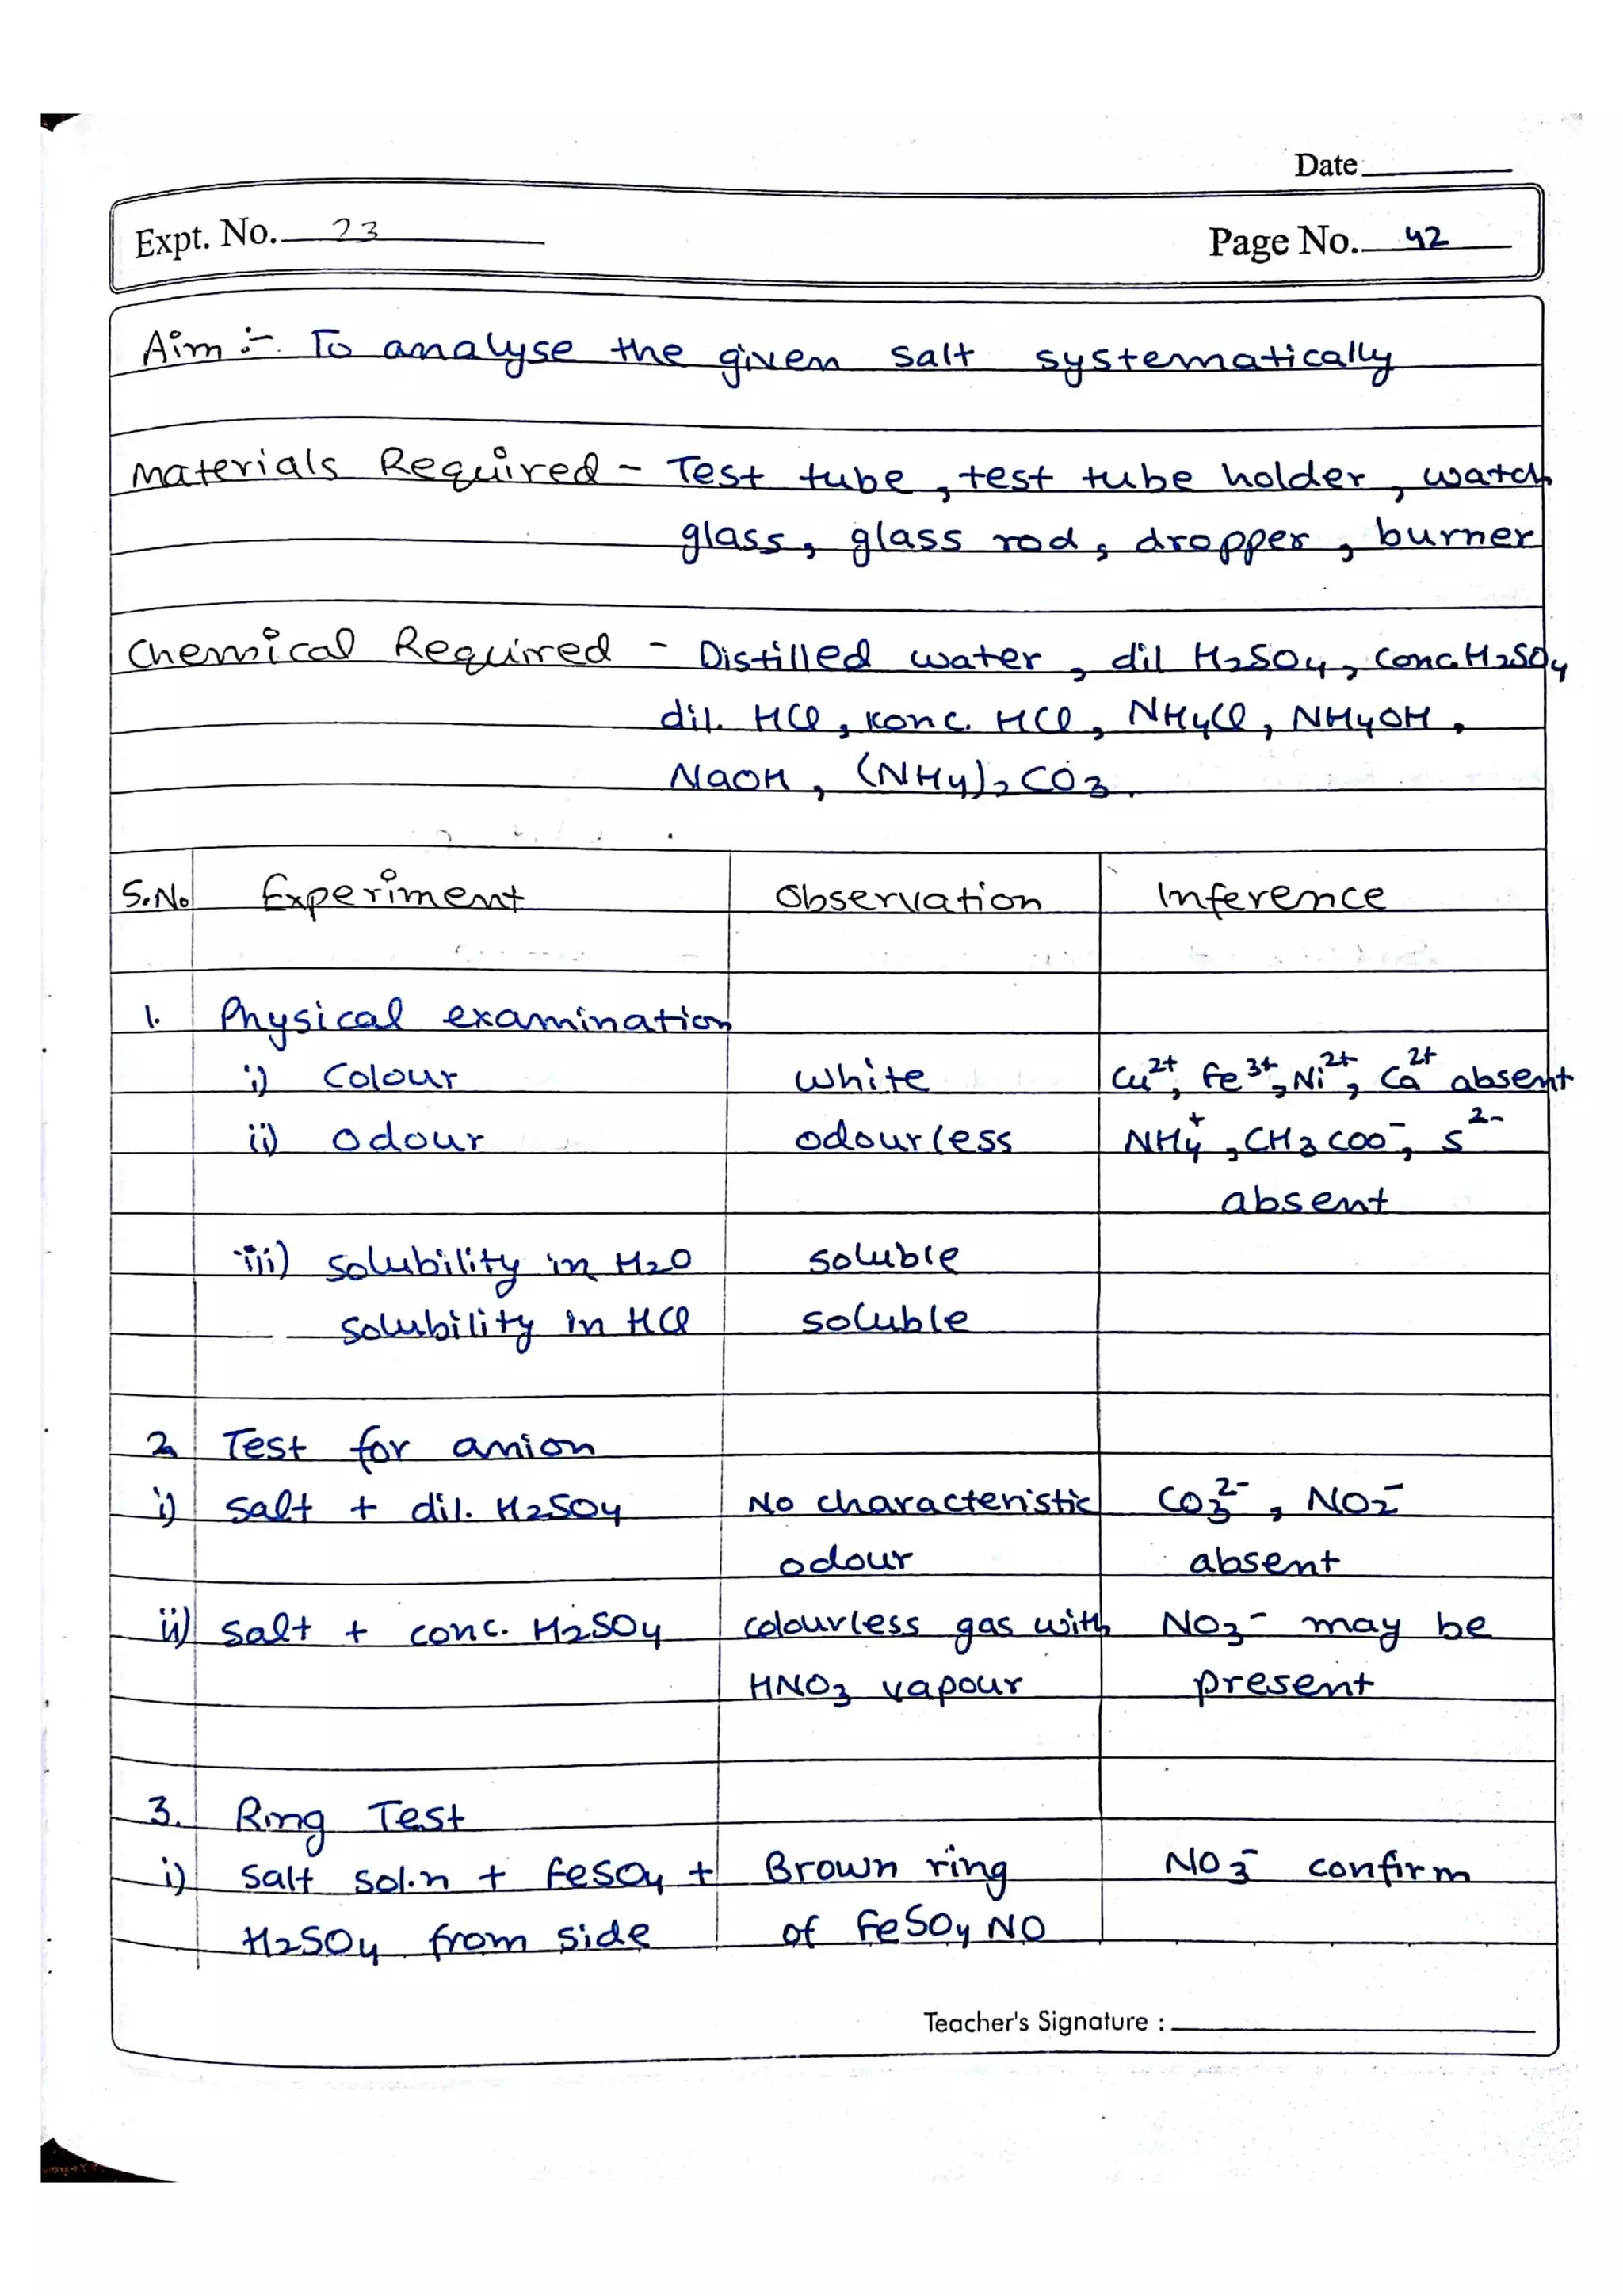 Date
Expt. No. 23
Page No. 42
Aim :- To analyse the given salt systematically
Materials Required - Test tube, test tube holder, watch
glass, glass rod, dropper, burner
Chemical Required - Distilled water, dil H2SO4, conc. H2SO4
dil. HCl, conc. HCl, NH4Cl, NH4OH,
NaOH, (NH4)2CO3.
S.No Experiment Observation Inference
1. Physical examination
i) Colour white Cu2+, Fe3+, Ni2+, Ca2+ absent
ii) odour odourless NH4+, CH3COO-, S2-
absent
iii) solubility in H2O soluble
solubility in HCl soluble
2. Test for anion
i) salt + dil. H2SO4 No characteristic CO3 2-, NO2-
odour absent
ii) salt + conc. H2SO4 colourless gas with NO3- may be
HNO3 vapour present
3. Ring Test
i) salt sol.n + FeSO4 + Brown ring NO3- confirm
H2SO4 from side of FeSO4 NO
Teacher's Signature :